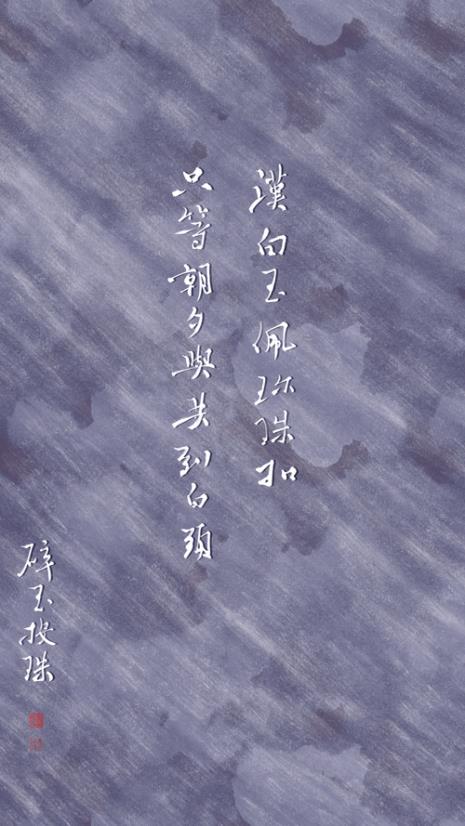 漢白玉佩珍珠扣
只等朝夕與共到白頭
碎玉投珠